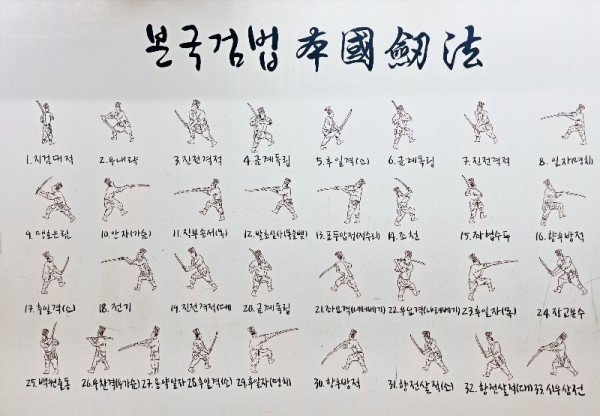 본국검법 本國劍法
1. 지검대적 2. 우내략 3. 진전격적 4. 금계독립 5. 후일격(소) 6. 금계독립 7. 진전격적 8. 일자(명치)
9. 맹호은림 10. 안자(가슴) 11. 직부송서(목) 12. 발초심사 13. 표두압정(정수리) 14. 조천 15. 좌협수두 16. 향우방적
17. 후일격(소) 18. 전기 19. 진전격적(대) 20. 금계독립 21. 좌요격(내려베기) 22. 우요격(내려베기) 23. 후일자(목) 24. 장교분수
25. 백원출동 26. 우찬격(우가슴) 27. 용약일자 28. 후일격(소) 29. 후일자(명치) 30. 향우방적 31. 향전살적(소) 32. 향전살적(대) 33. 시우상전